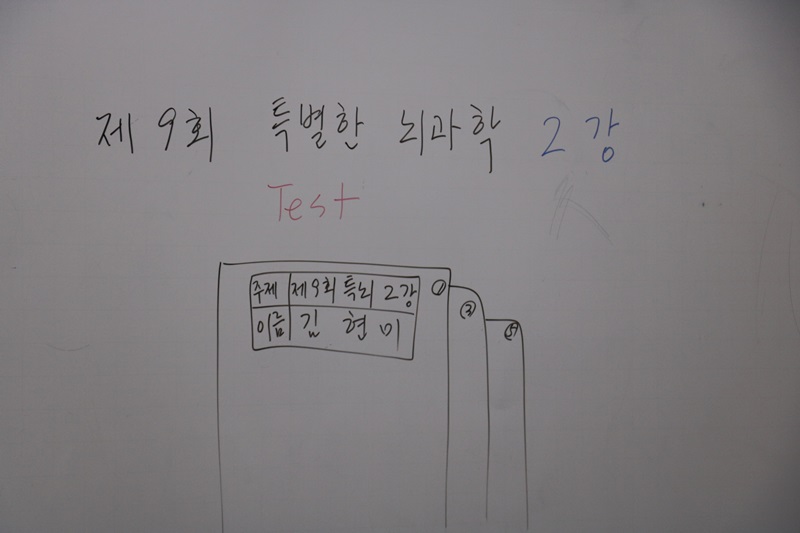 제 9회 특별한 뇌과학 2강
Test
주제 제9회 특뇌 2강 ①
이름 김 현 미